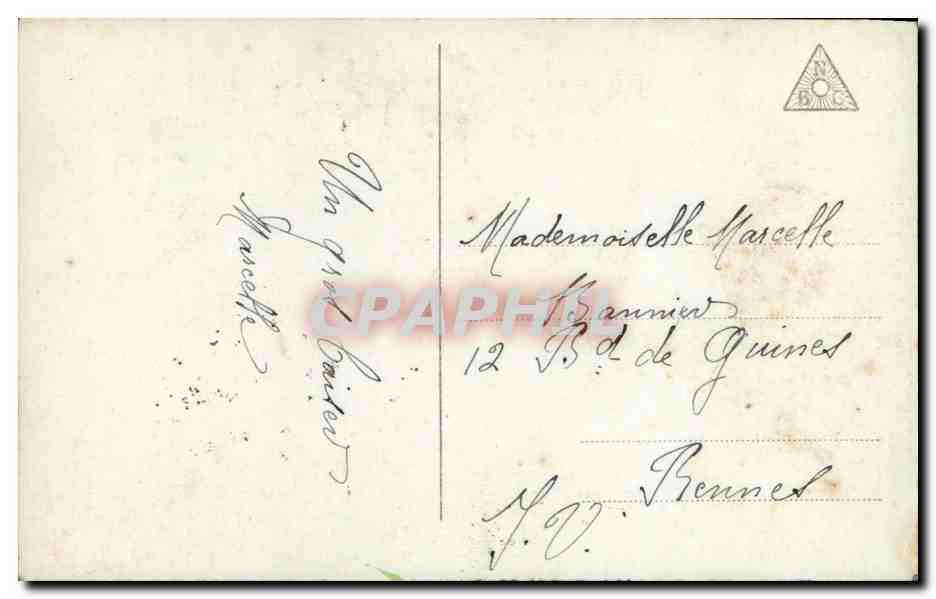 Un gros baiser
Marcelle
N
B C
Mademoiselle Marcelle
Bannier
12 Bd. de Guines
Rennes
I. V.
CPAPHIL